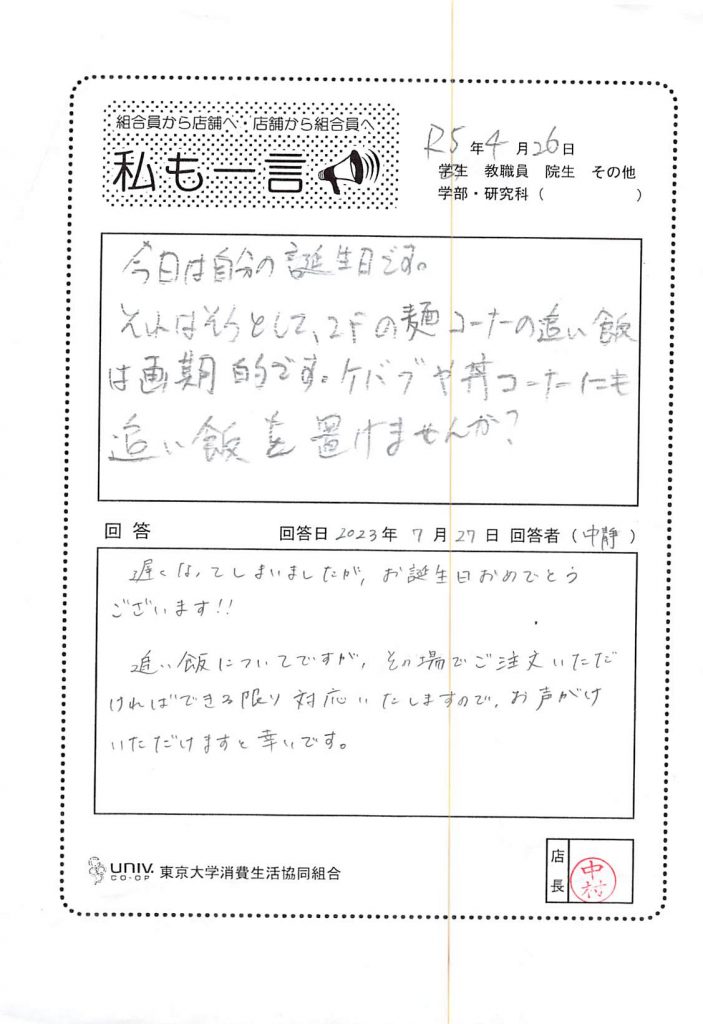 組合員から店舗へ・店舗から組合員へ
私も一言
R5年4月26日
学生 教職員 院生 その他
学部・研究科（ ）
今日は自分の誕生日です。
それはそうとして、2Fの麺コーナーの追い飯
は画期的です。ケバブや丼コーナーにも
追い飯を置けませんか?
回答 回答日2023年7月27日 回答者（中静）
遅くなってしまいましたが、お誕生日おめでとう
ございます!!
追い飯についてですが、その場でご注文いただ
ければできる限り対応いたしますので、お声がけ
いただけますと幸いです。
UNIV. CO-OP 東京大学消費生活協同組合
店長 中村